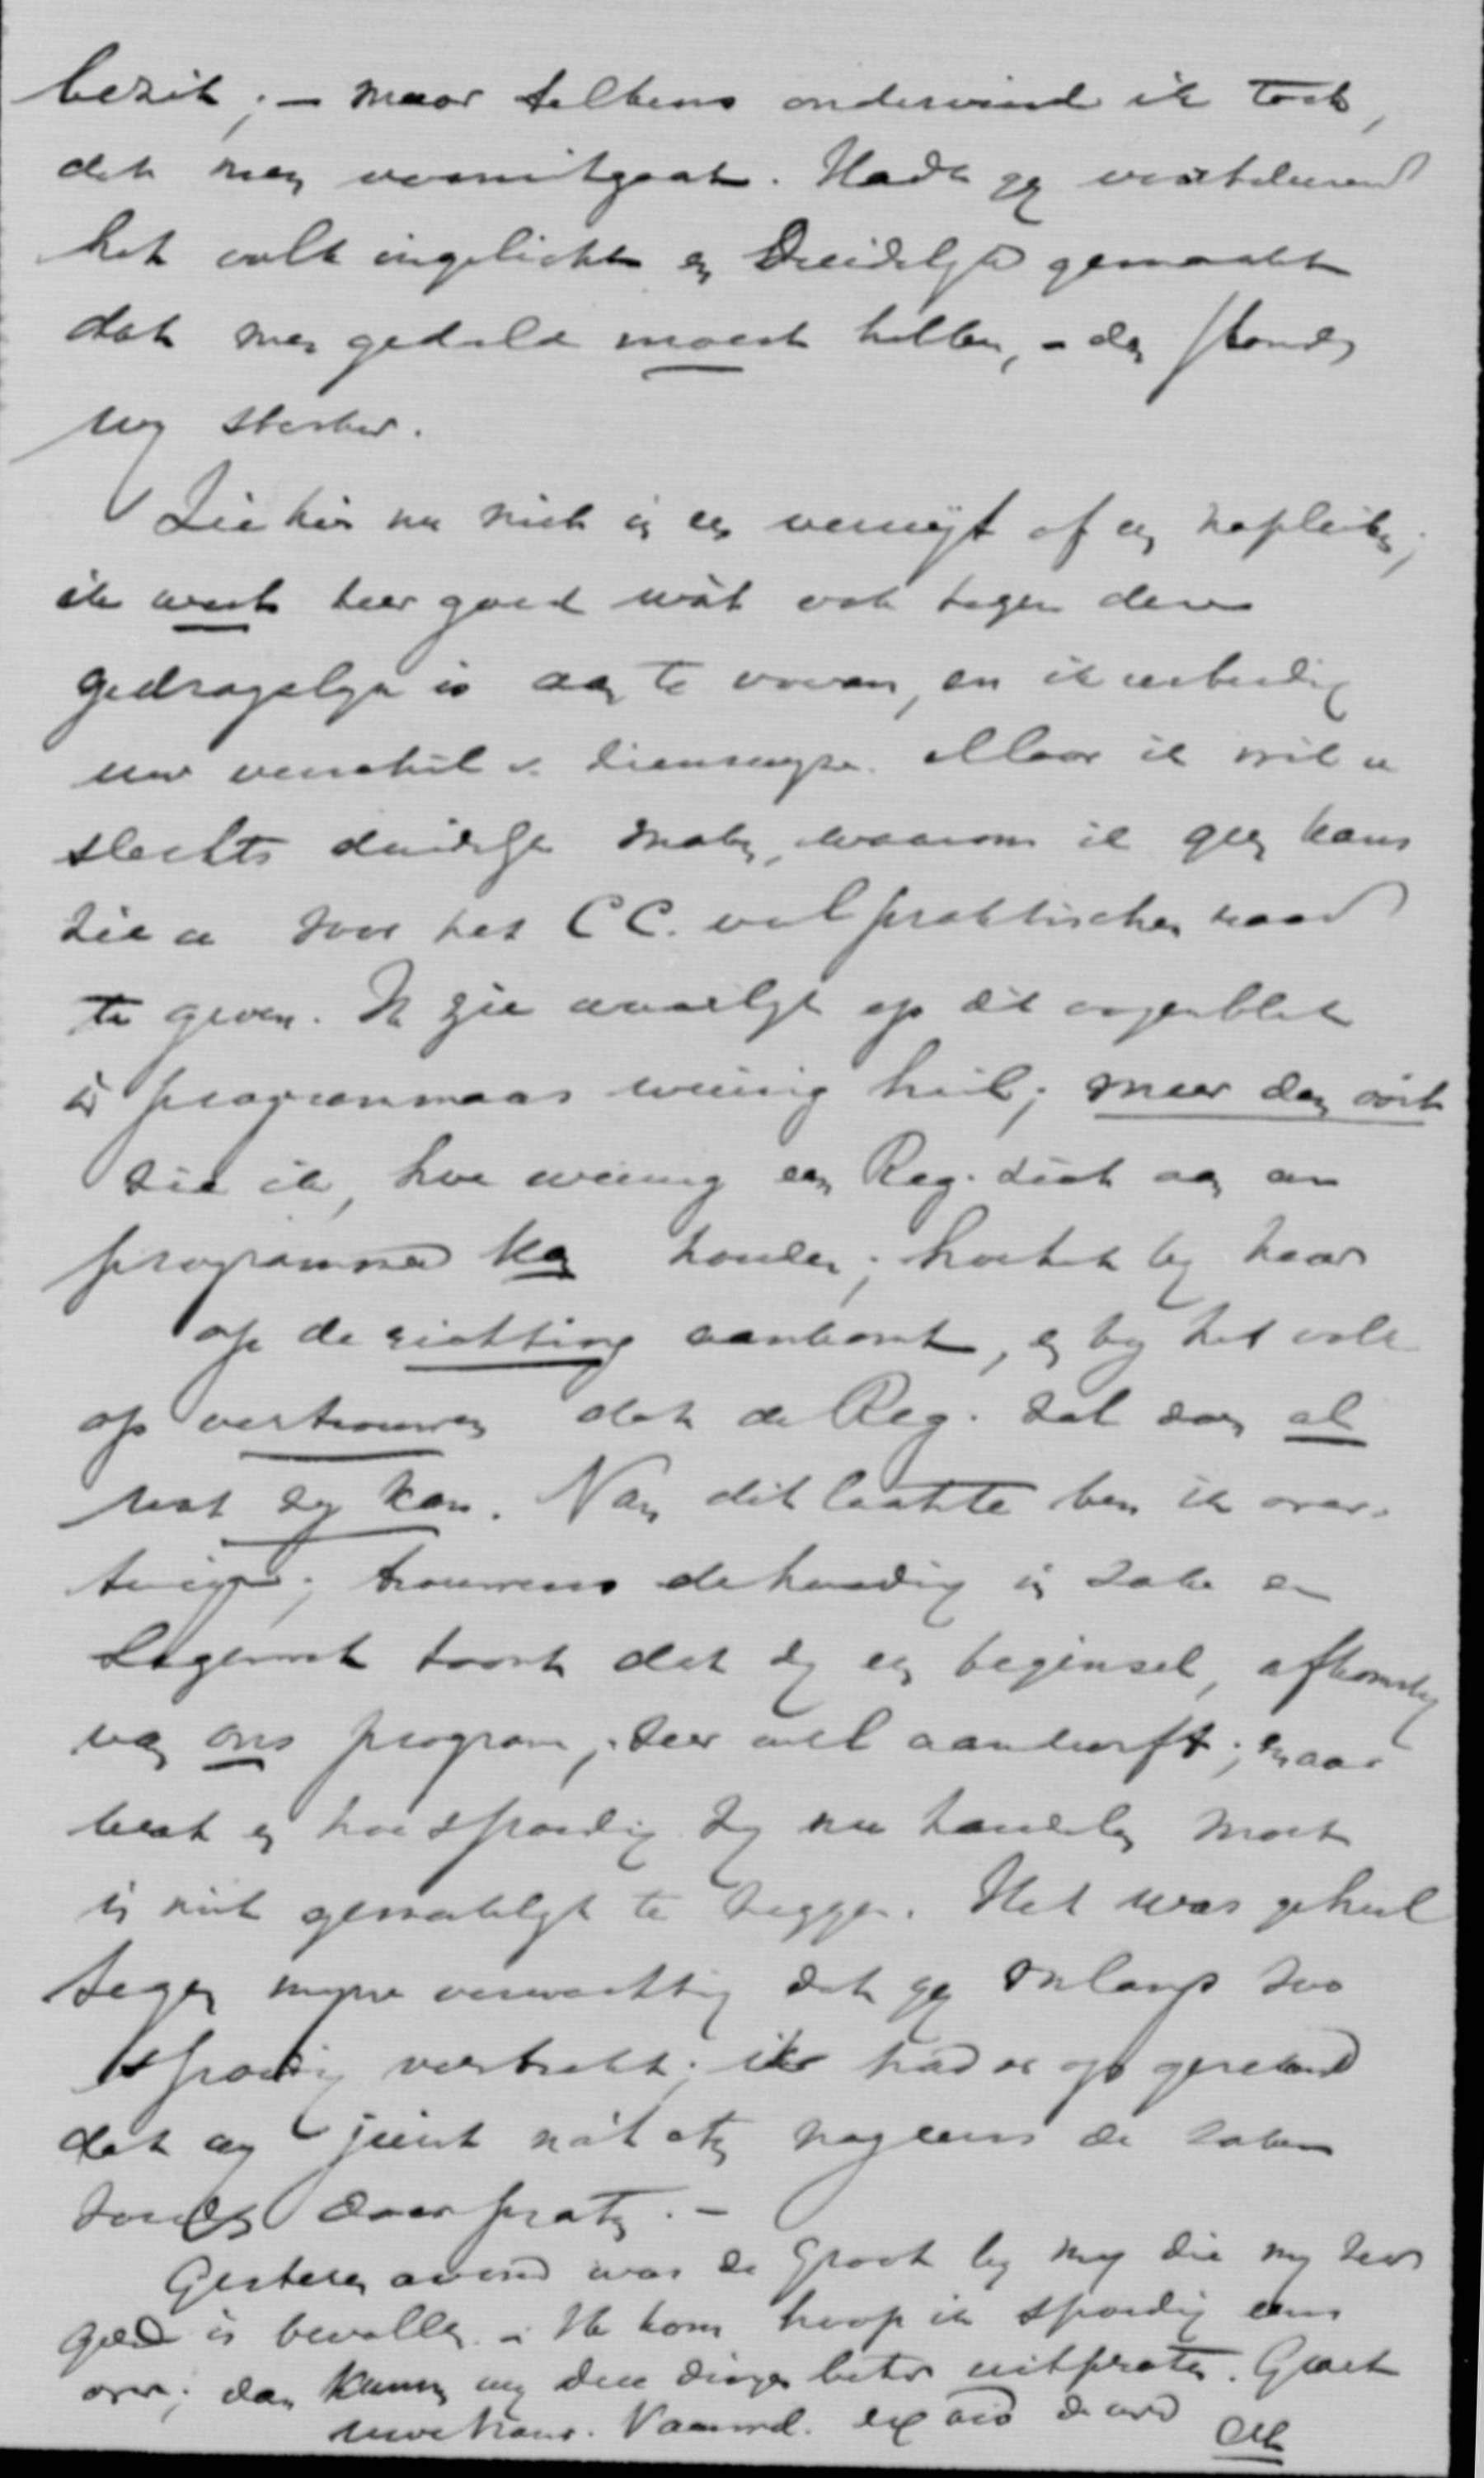 bezit; — maar telkens ondervind ik toch,
dat men vooruitgaat. Hadt gij voortdurend
het volk ingelicht en duidelijk gemaakt
dat men geduld moest hebben, – dan stonden
wij sterker.
Zie hier nu niet in een verwijt of een napleiten;
ik weet zeer goed wàt ook tegen deze
gedragslijn is aan te voeren, en ik eerbiedig
uw verschil v. zienswijze. Maar ik wil u
slechts duidelijk maken, waarom ik geen kans
zie u voor het CC. veel praktischen raad
te geven. Ik zie waarlijk op dit oogenblik
in programmaas weinig heil; meer dan ooit
zie ik, hoe weinig een Reg. zich aan een
programma kan houden; hoe het bij haar
op de richting aankomt, en bij het volk
op vertrouwen dat de Reg. zal doen al
wat zij kan. Van dit laatste ben ik over-
tuigd; trouwens de houding in zake
toont dat zij een beginsel, afkomstig
van ons program, zeer wel aandurft; maar
wat en hoe spoedig zij nu handelen moet
is niet gemakkelijk te zeggen. Het was geheel
tegen mijne verwachting dat gij onlangs zoo
spoedig vertrokt; ik had er op gerekend
dat wij juist nog eens de zaken
zouden doorpraten. –
Gisteren avond was de Groot bij mij die mij zeer
goed is bevallen. – Ik kom hoop ik spoedig eens
over; dan kunnen wij deze dingen beter uitpraten. Groet
uwe